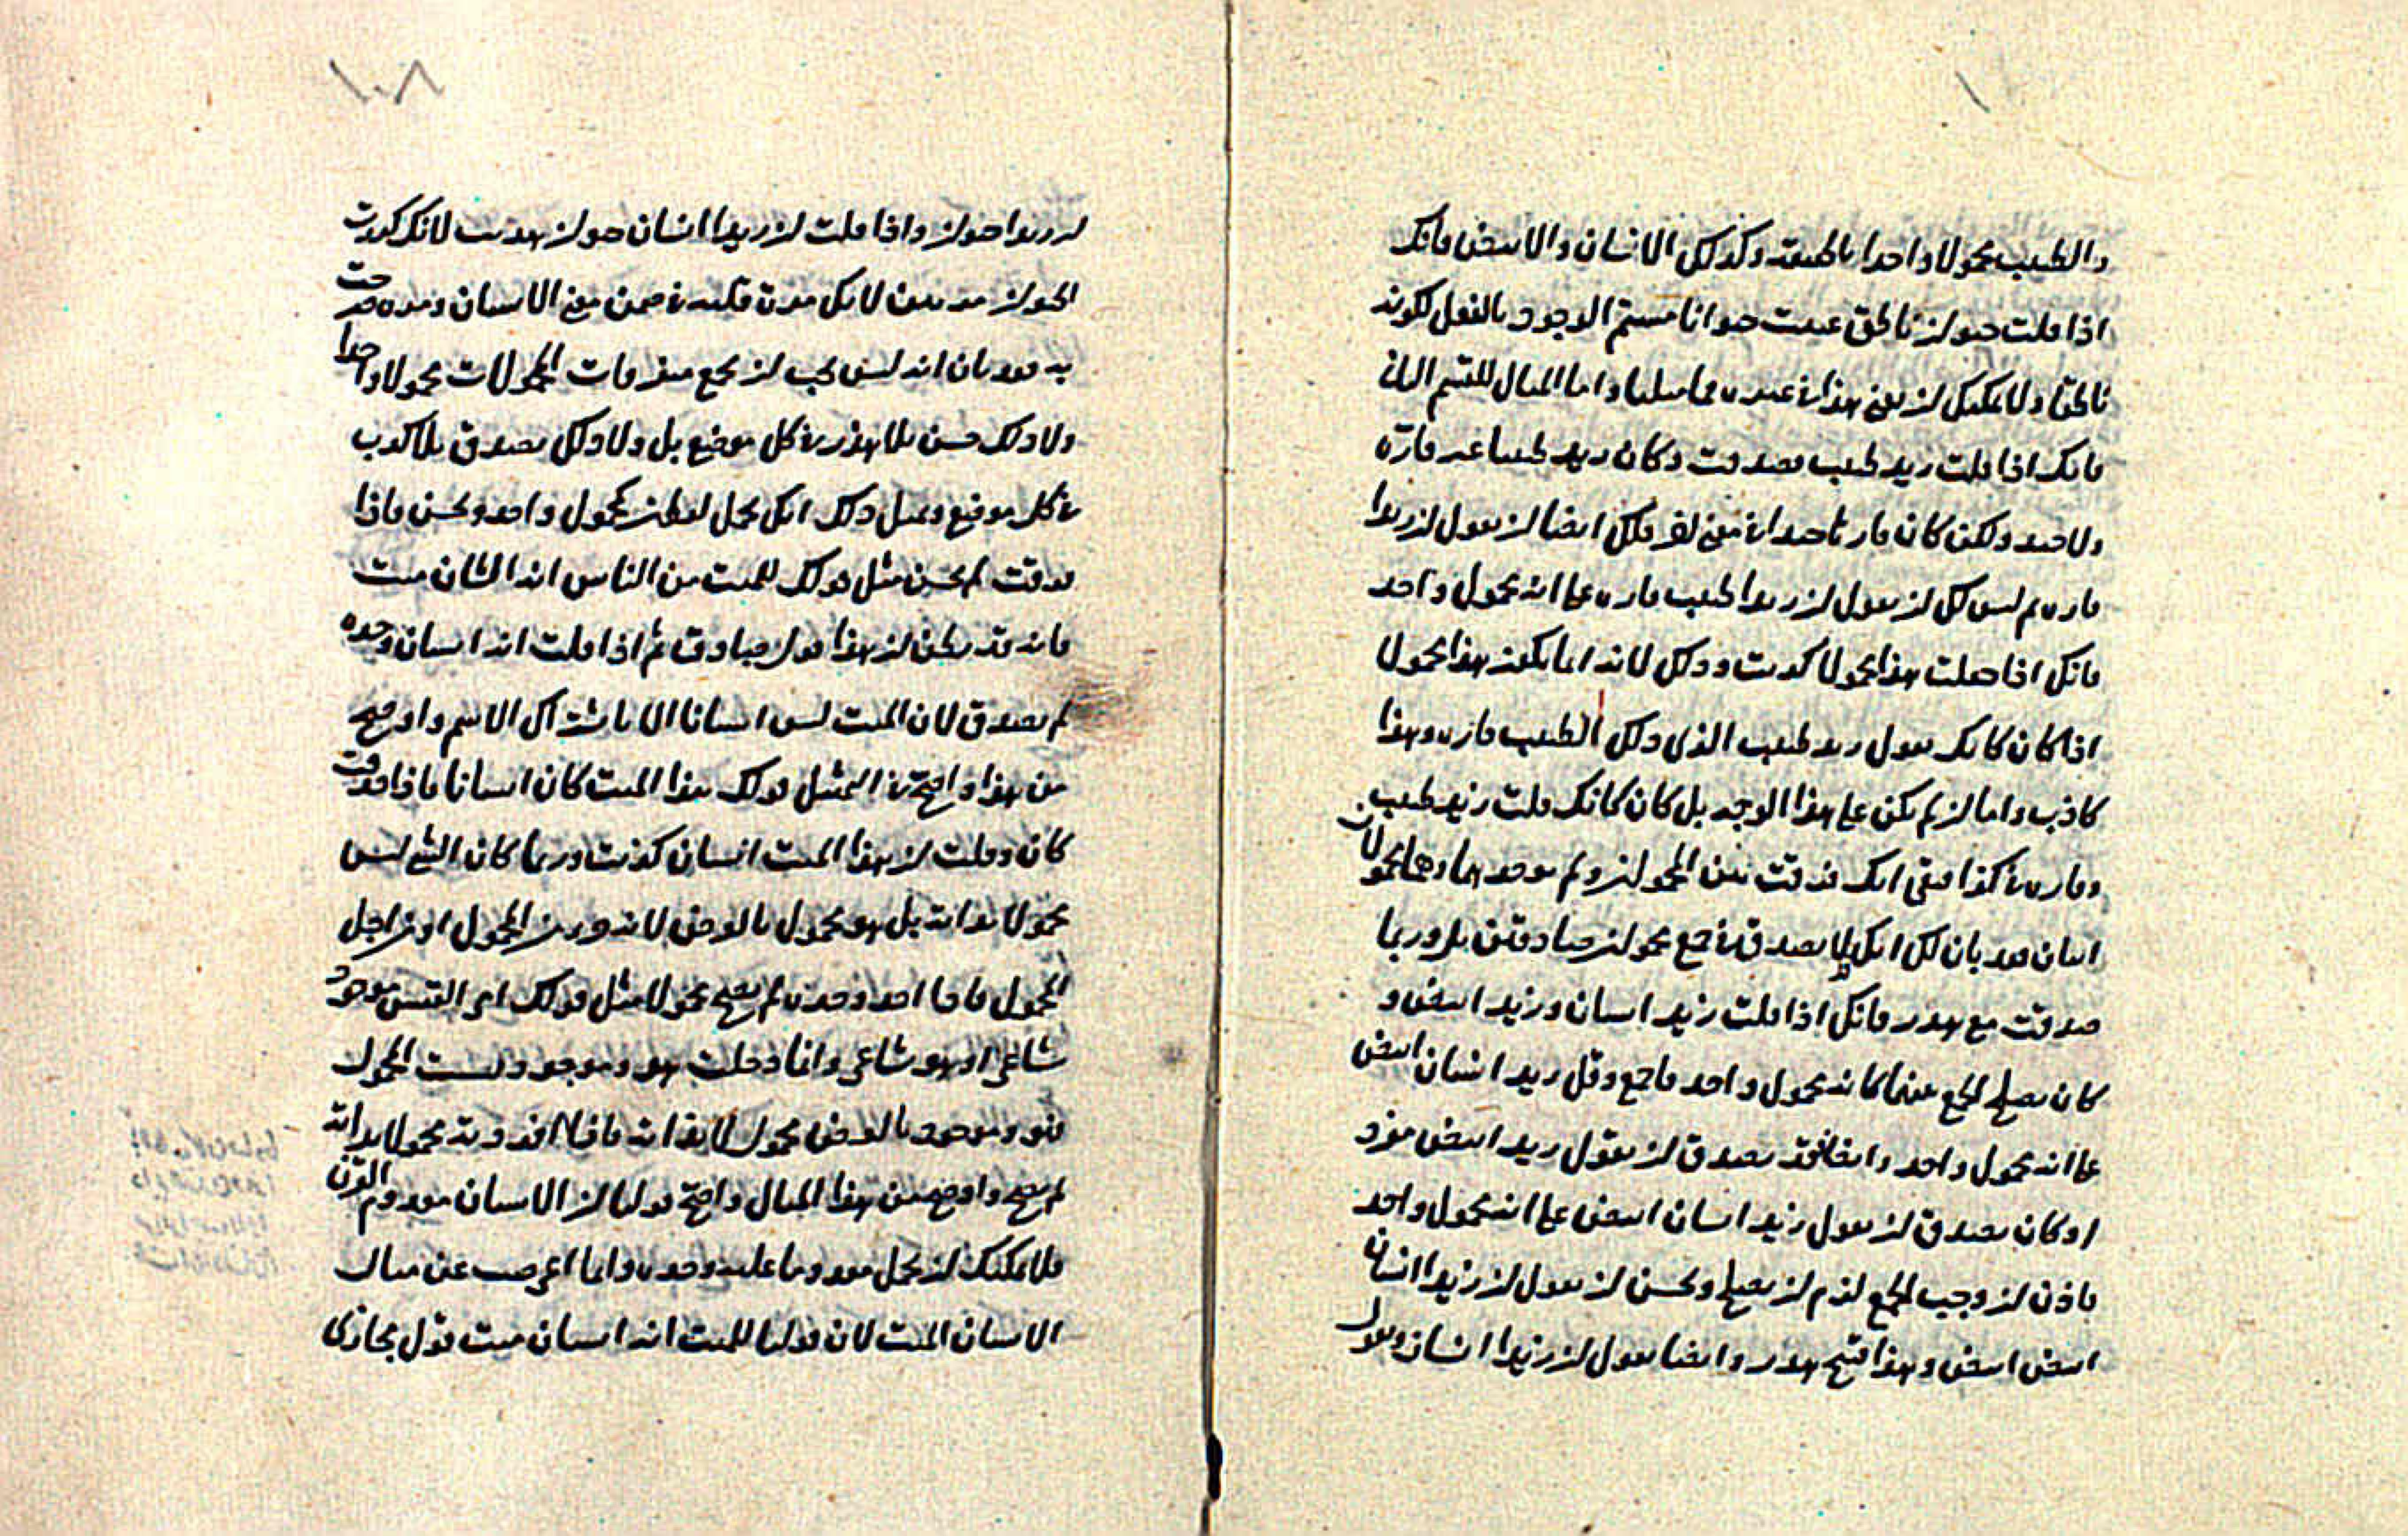 والطبيب محمولا واحدا بالحقيقة وكذلك الانسان والابيض فانك
اذا قلت حيوان ناطق عنيت حيوانا مستتم الوجود بالفعل لكونه
ناطقا ولا يمكنك ان تعني هذا في غيره مما مثلنا واما المثال للقسم الثاني
فانك اذا قلت زيد طبيب فصدقت وكان زيد طبيبا غير فاره
ولا جيد ولكن كان فارها جيدا في معنى اخر فلك ايضا ان تقول ان زيدا
فاره ثم ليس لك ان تقول ان زيدا طبيب فاره على انه محمول واحد
فانك اذا جعلت هذا محمولا كذبت وذلك لانه انما يكون هذا محمولا
اذا كان كانك تقول زيد طبيب الذي ذلك الطبيب فاره وهذا
كاذب واما ان لم يكن على هذا الوجه بل كان كانك قلت زيد طبيب
وفاره في كذا فبقي انك فرقت بين المحمولين ولم توحدهما وهما محمولان
اثنان فقد بان لك انك لا تصدق في جمع محمولين صادقين بل وربما
صدقت مع هذر فانك اذا قلت زيد انسان وزيد ابيض و
كان يصلح الجمع بينهما كانه محمول واحد فاجمع وقل زيد انسان ابيض
على انه محمول واحد وايضا فقد تصدق ان تقول زيد ابيض مفرد
او كان يصدق ان تقول زيد انسان ابيض على انه محمول واحد
فاذن ان وجب الجمع لزم ان يصلح ويحسن ان تقول ان زيدا انسان
ابيض ابيض وهذا قبيح هذر وايضا تقول ان زيدا انسان وتقول
١٠٨
ان زيدا حيوان واذا قلت ان زيدا انسان حيوان هذيت لانك كررت
الحيوان مرتين لانك مرة قلته في ضمن معنى الانسان ومرة صرحت
به فقد بان انه ليس يجب ان يجمع متفرقات المحمولات محمولا واحدا
ولا ذلك حسن بلا هذر في كل موضع بل ولا ذلك يصدق بلا كذب
في كل موضع ومثل ذلك انك تحمل لفظين كمحمول واحد ويحسن فاذا
فرقت لم يحسن مثل قولك للميت من الناس انه انسان ميت
فانه قد يظن ان هذا قول صادق ثم اذا قلت انه انسان وحده
لم يصدق لان الميت ليس انسانا الا باشتراك الاسم واوضح
من هذا واصح في التمثيل قولك هذا الميت كان انسانا فاذا حذفت
كان وقلت ان هذا الميت انسان كذبت وربما كان الشيء ليس
محمولا بذاته بل هو محمول بالعرض لانه جزء من المحمول او من اجل
المحمول فاذا اخذ وحده لم يصح محمولا مثل قولك امرؤ القيس موجود
شاعرا وهو شاعر وانما دخلت هو وموجود لسبب المحمول
فهو وموجود بالعرض محمول لا بذاته فاذا افردته محمولا بذاته
لم يصح واوضح من هذا المثال واصح قولنا ان الانسان معدوم القرن
فلا يمكنك ان تحمل معدوما عليه وحده وانما اعرضت عن مثال
الانسان الميت لان قولنا للميت انه انسان ميت قول مجازى